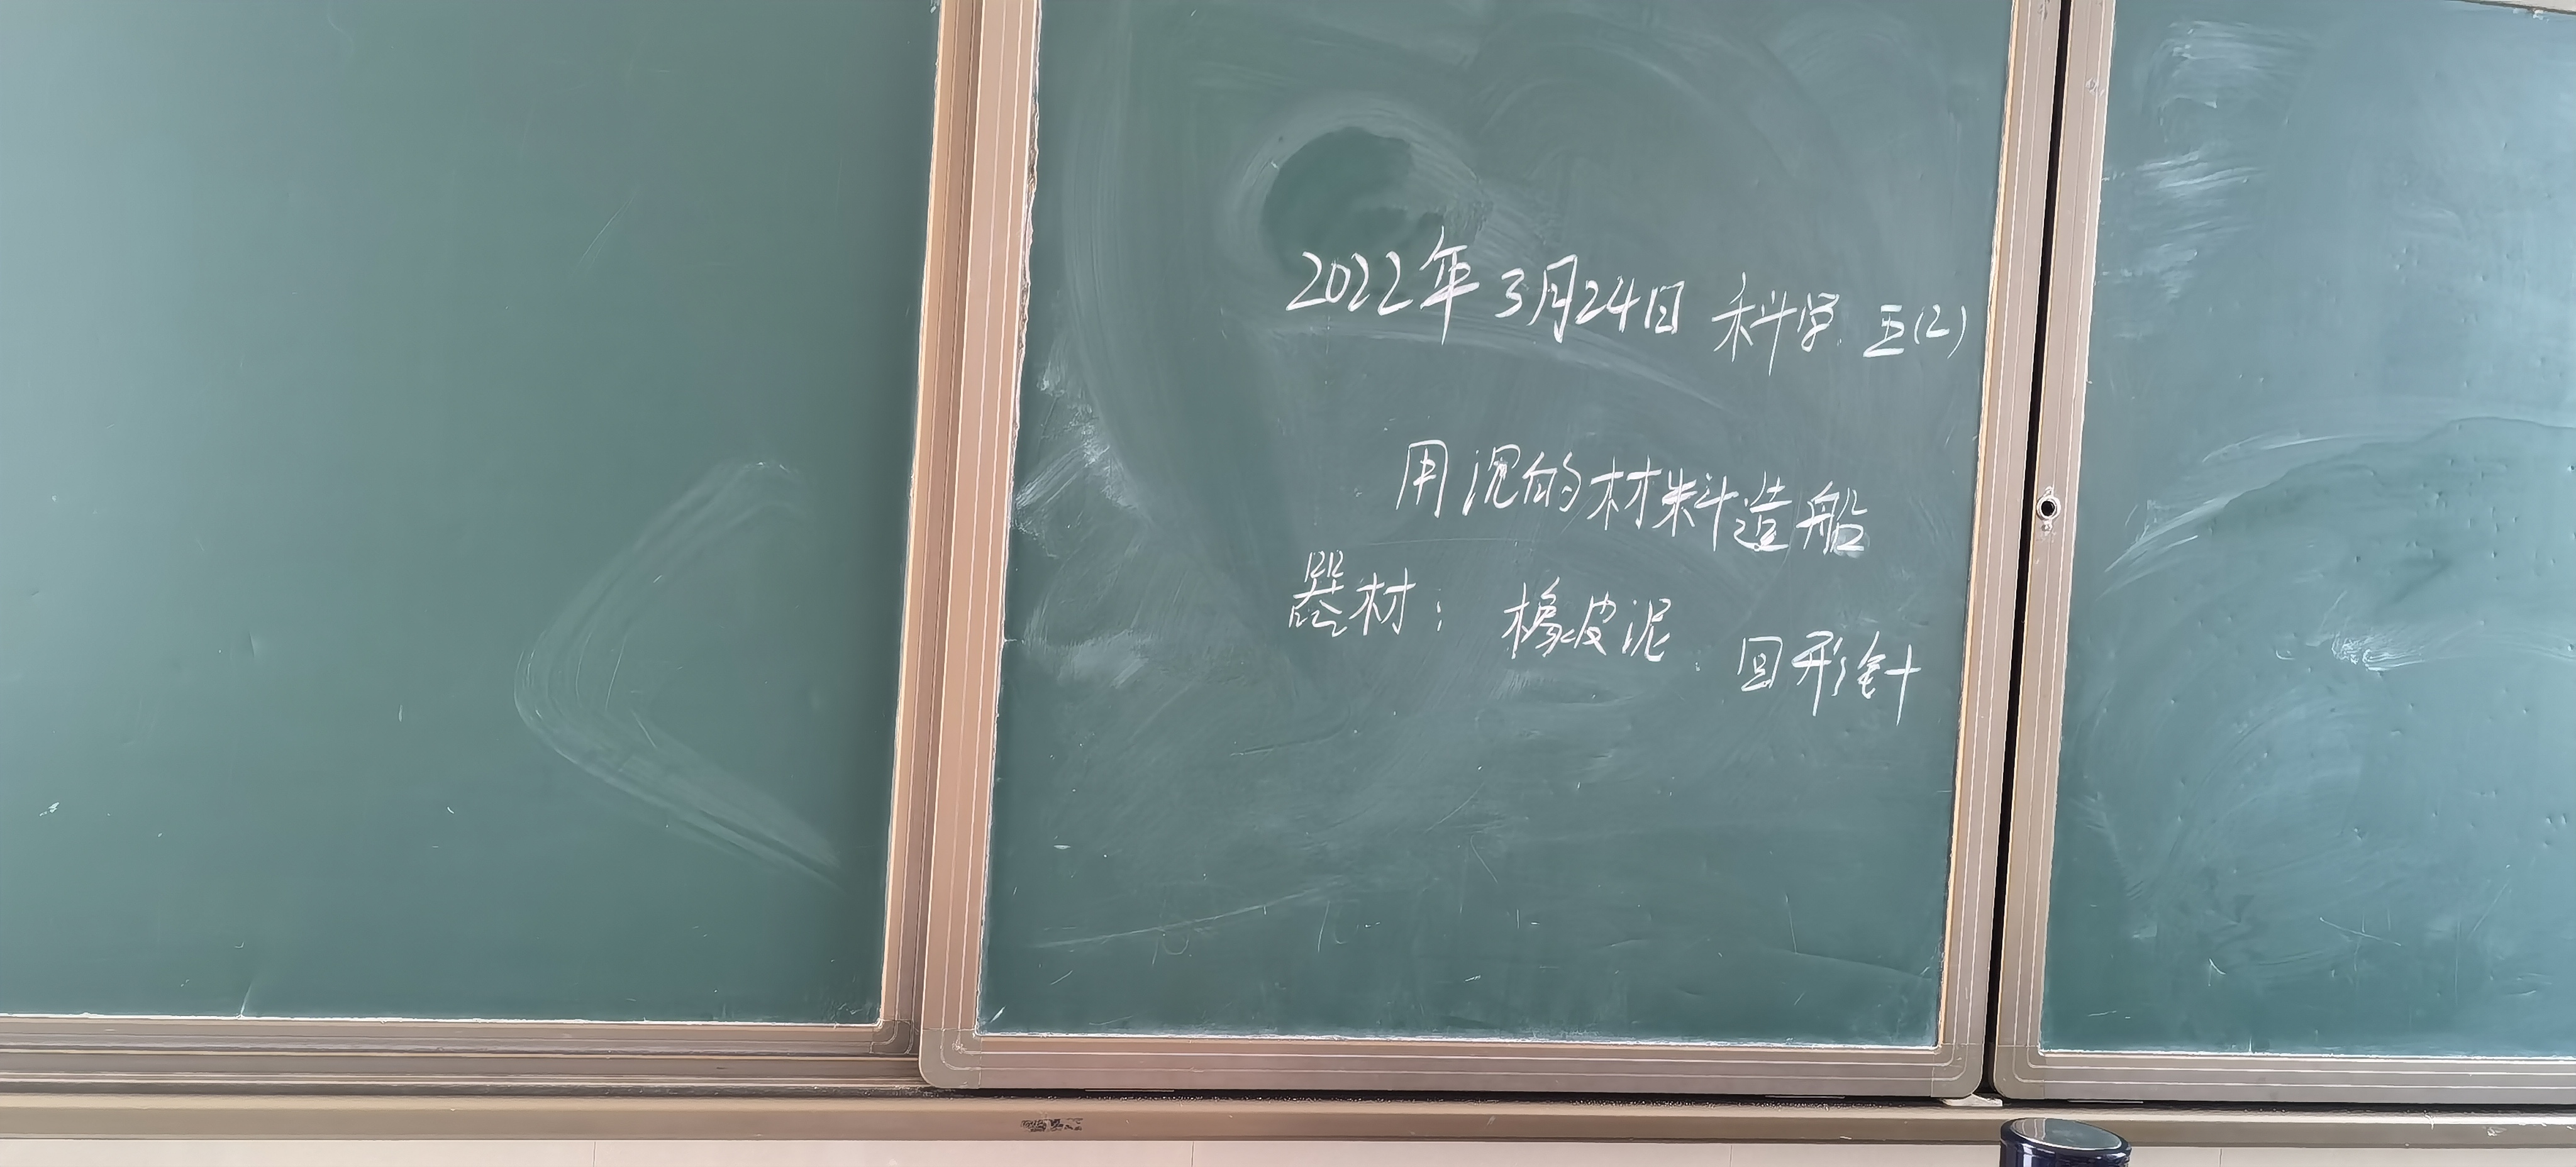 2022年3月24日 科学 五(2)
用沉的材料造船
器材: 橡皮泥 回形针